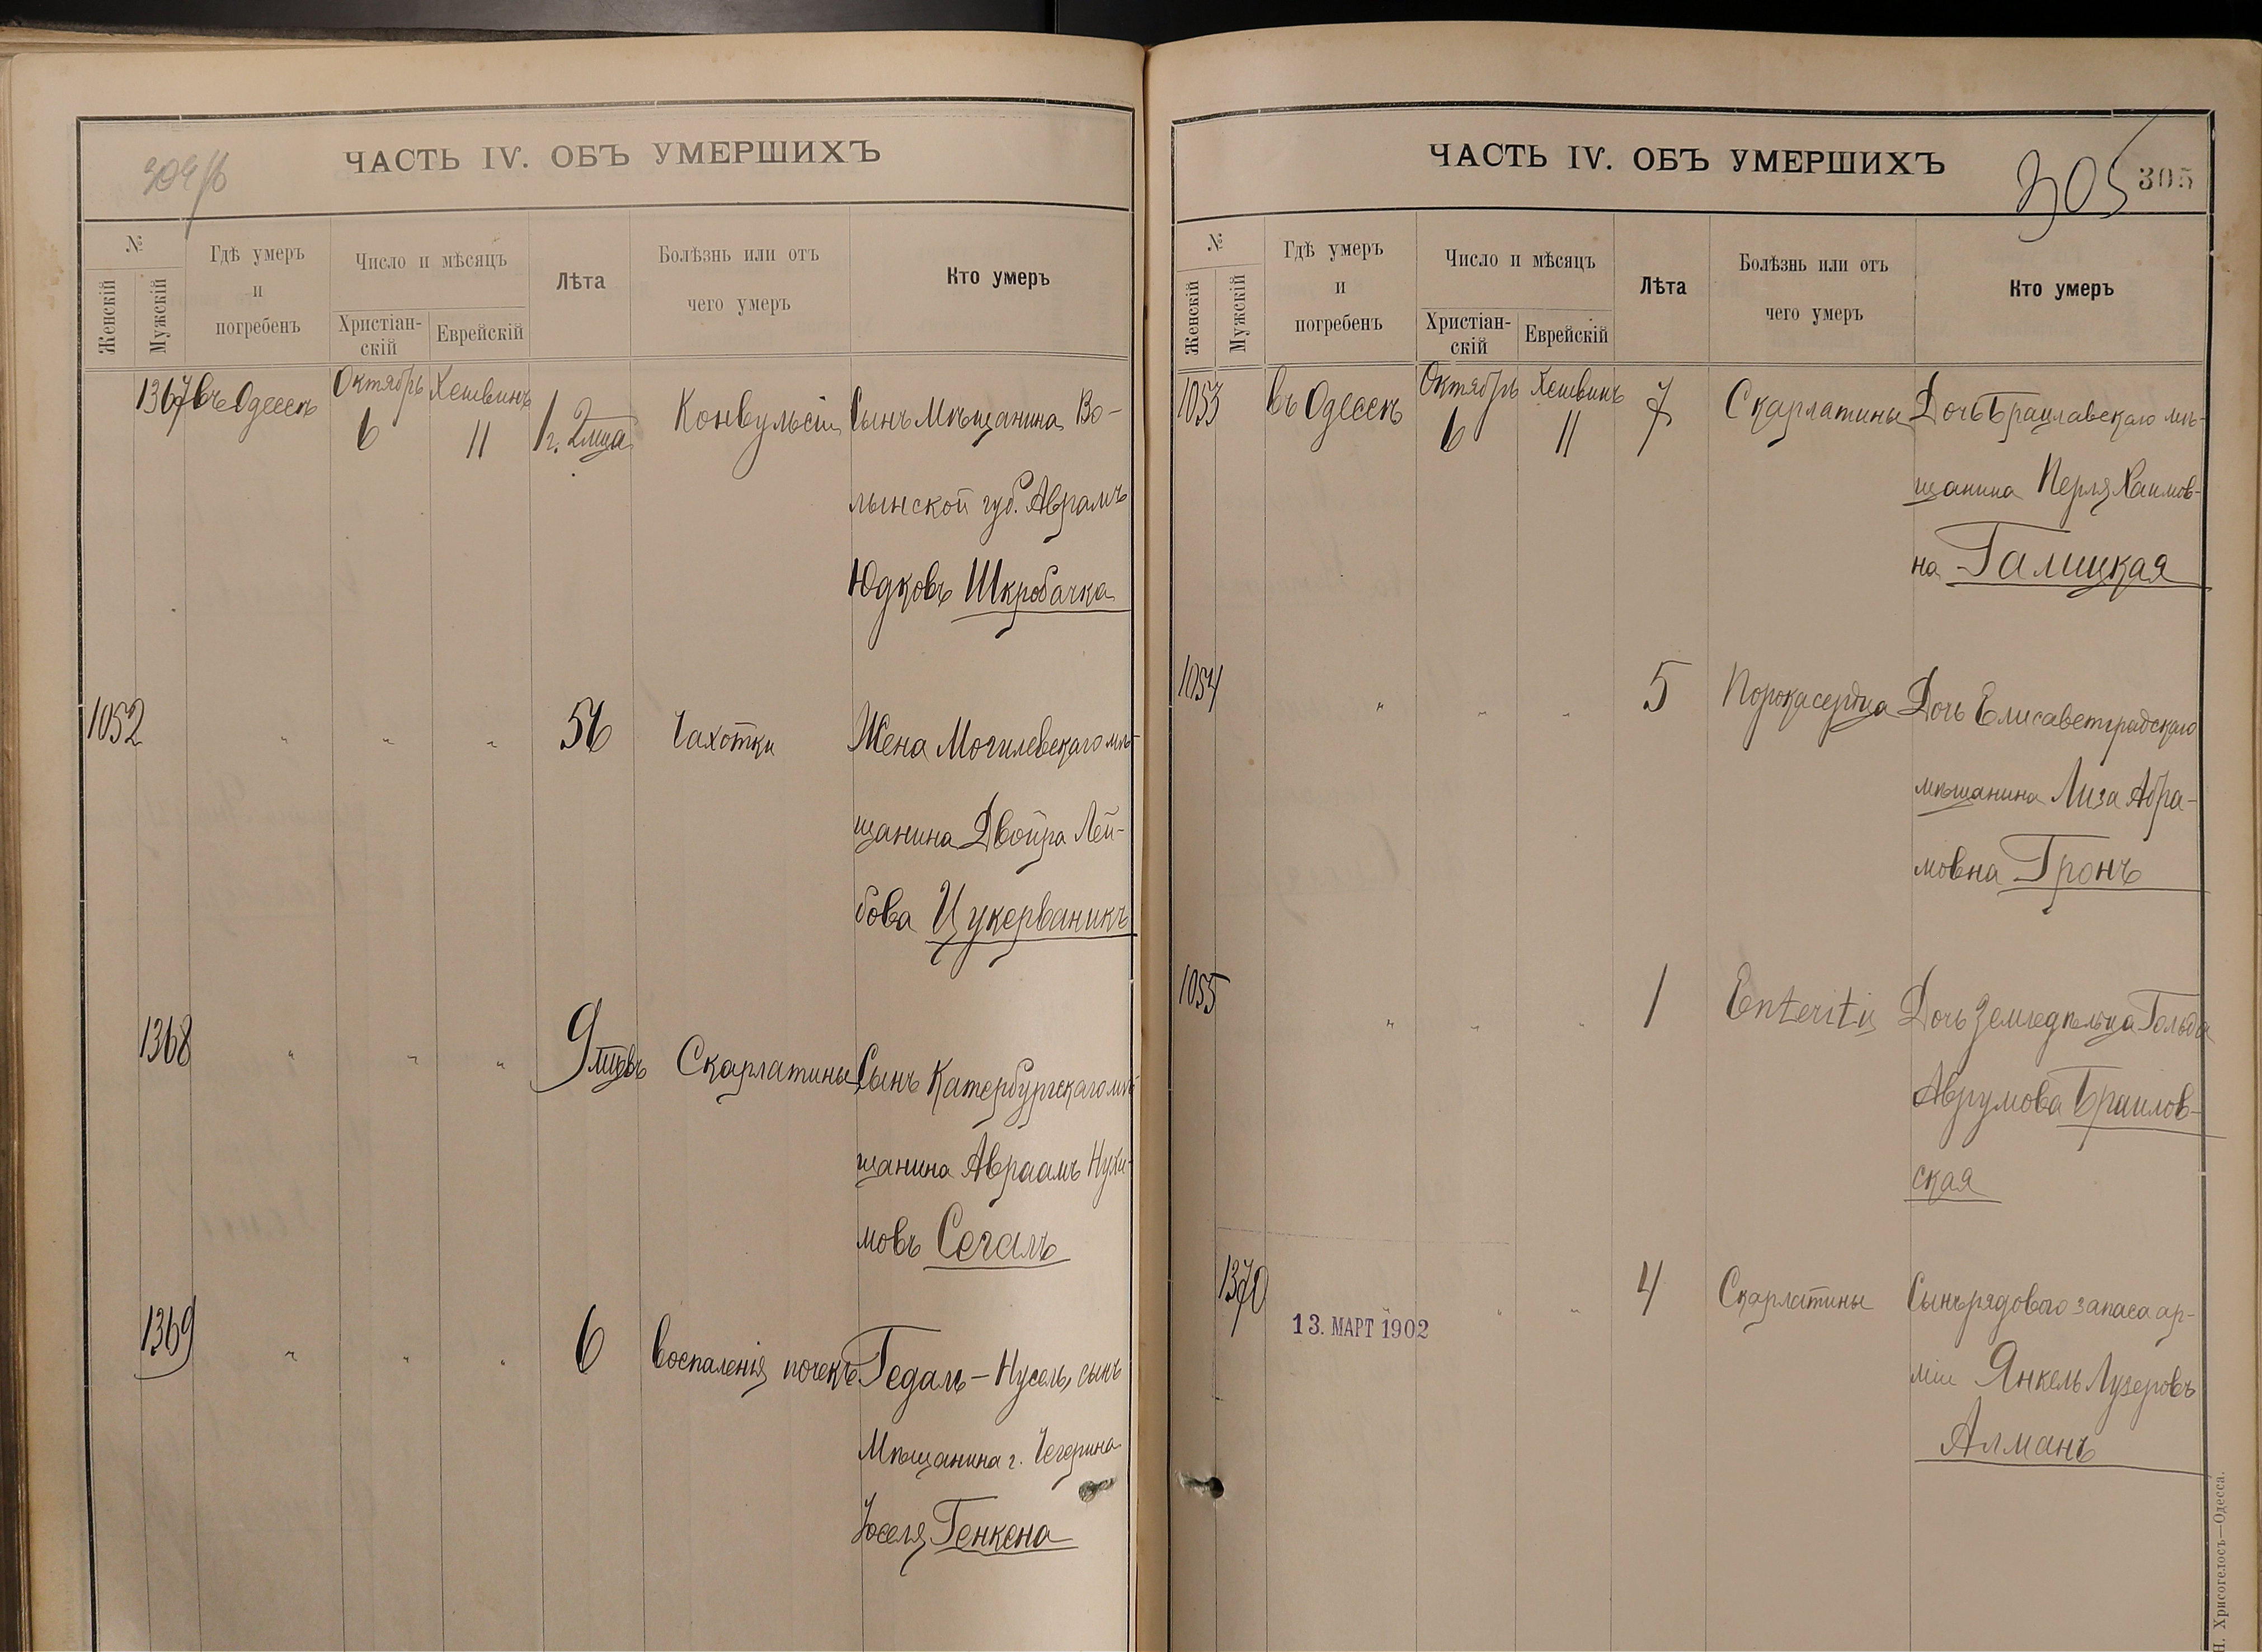 304/б
ЧАСТЬ IV. ОБЪ УМЕРШИХЪ
№
Женскій
Мужскій
Гдѣ умеръ
и
погребенъ
Число и мѣсяцъ
Христіан-
скій
Еврейскій
Лѣта
Болѣзнь или отъ
чего умеръ
Кто умеръ
1367 въ Одессѣ Октябрь 6 Хешвинъ 11 1 г. 2 мца Конвульсіи Сынъ мѣщанина Во-
лынской губ. Аврамъ
Юдковъ Шкробачка
1052 " " " 56 Чахотки Жена Могилевскаго мѣ-
щанина Двойра Лей-
бова Цукерваникъ
1368 " " " 9 мцевъ Скарлатины Сынъ Катербургскаго мѣ-
щанина Авраамъ Нухи-
мовъ Сегалъ
1369 " " " 6 воспаленія почекъ Гедаль-Нусель, сынъ
Мѣщанина г. Чегерина
Іоселя Генкена
ЧАСТЬ IV. ОБЪ УМЕРШИХЪ
305
305
№
Женскій
Мужскій
Гдѣ умеръ
и
погребенъ
Число и мѣсяцъ
Христіан-
скій
Еврейскій
Лѣта
Болѣзнь или отъ
чего умеръ
Кто умеръ
1053 въ Одессѣ Октябрь 6 Хешвинъ 11 7 Скарлатины Дочь Брацлавскаго мѣ-
щанина Перля Хаимов-
на Галицкая
1054 " " " 5 Порока сердца Дочь Елисаветградскаго
мѣщанина Лиза Абра-
мовна Гронъ
1055 " " " 1 Enteritis Дочь Земледѣльца Гольда
Аврумова Браилов-
ская
1370 " " " 4 Скарлатины Сынъ рядового запаса ар-
міи Янкель Лузеровъ
Алманъ
13. МАРТ 1902
Н. Хрисогелосъ—Одесса.